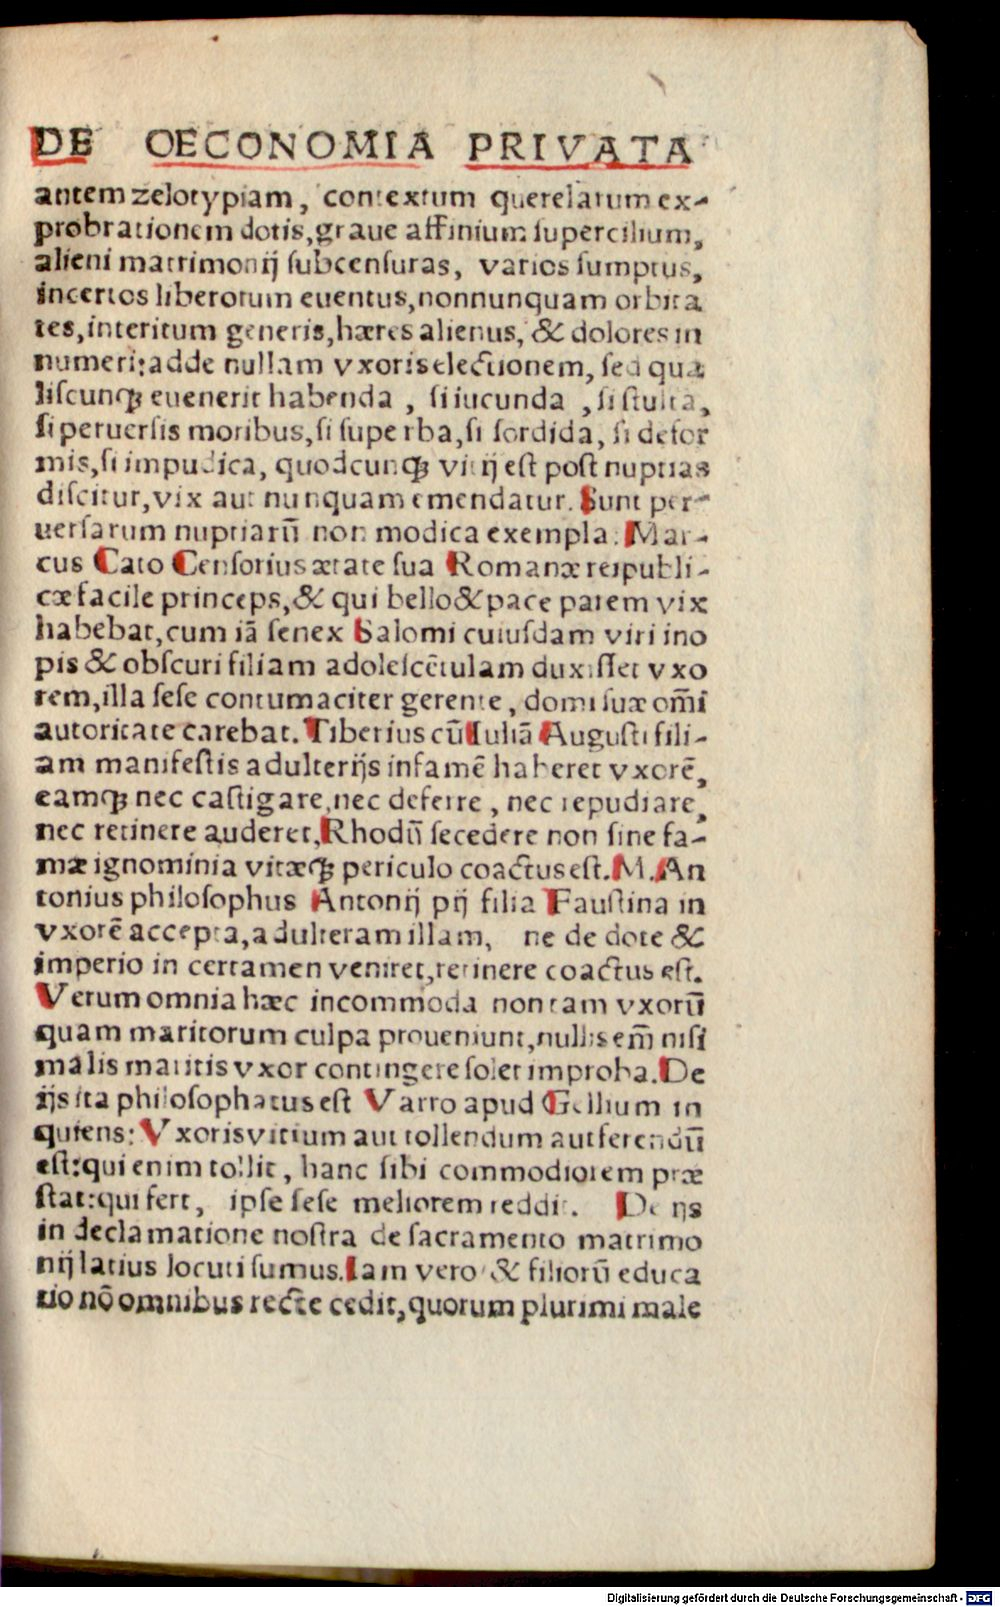 DE OECONOMIA PRIVATA
antem zelotypiam, contextum querelarum ex-
probrationem dotis, graue affinium supercilium,
alieni matrimonij subcensuras, varios sumptus,
incertos liberorum euentus, nonnunquam orbita
tes, interitum generis, hæres alienus, & dolores in
numeri: adde nullam vxoris electionem, sed qua
liscunq; euenerit habenda, si iucunda, si stulta,
si peruersis moribus, si superba, si sordida, si defor
mis, si impudica, quodcunq; vitij est post nuptias
discitur, vix aut nunquam emendatur. Sunt per-
uersarum nuptiarū non modica exempla: Mar-
cus Cato Censorius ætate sua Romanæ reipubli-
cæ facile princeps, & qui bello & pace parem vix
habebat, cum iā senex Salomi cuiusdam viri ino
pis & obscuri filiam adolescētulam duxisset vxo
rem, illa sese contumaciter gerente, domi suæ om̄i
autoritate carebat. Tiberius cū Iuliā Augusti fili-
am manifestis adulterijs infamē haberet vxorē,
eamq; nec castigare, nec deferre, nec repudiare,
nec retinere auderet, Rhodū secedere non sine fa-
mæ ignominia vitæq; periculo coactus est. M. An
tonius philosophus Antonij pij filia Faustina in
vxorē accepta, adulteram illam, ne de dote &
imperio in certamen veniret, retinere coactus est.
Verum omnia hæc incommoda non tam vxorū
quam maritorum culpa proueniunt, nullis em̄ nisi
malis maritis vxor contingere solet improba. De
ijs ita philosophatus est Varro apud Gellium in
quiens: Vxoris vitium aut tollendum aut ferendū
est: qui enim tollit, hanc sibi commodiorem præ
stat: qui fert, ipse sese meliorem reddit. De ijs
in declamatione nostra de sacramento matrimo
nij latius locuti sumus. Iam vero & filiorū educa
tio nō omnibus recte cedit, quorum plurimi male
Digitalisierung gefördert durch die Deutsche Forschungsgemeinschaft - DFG